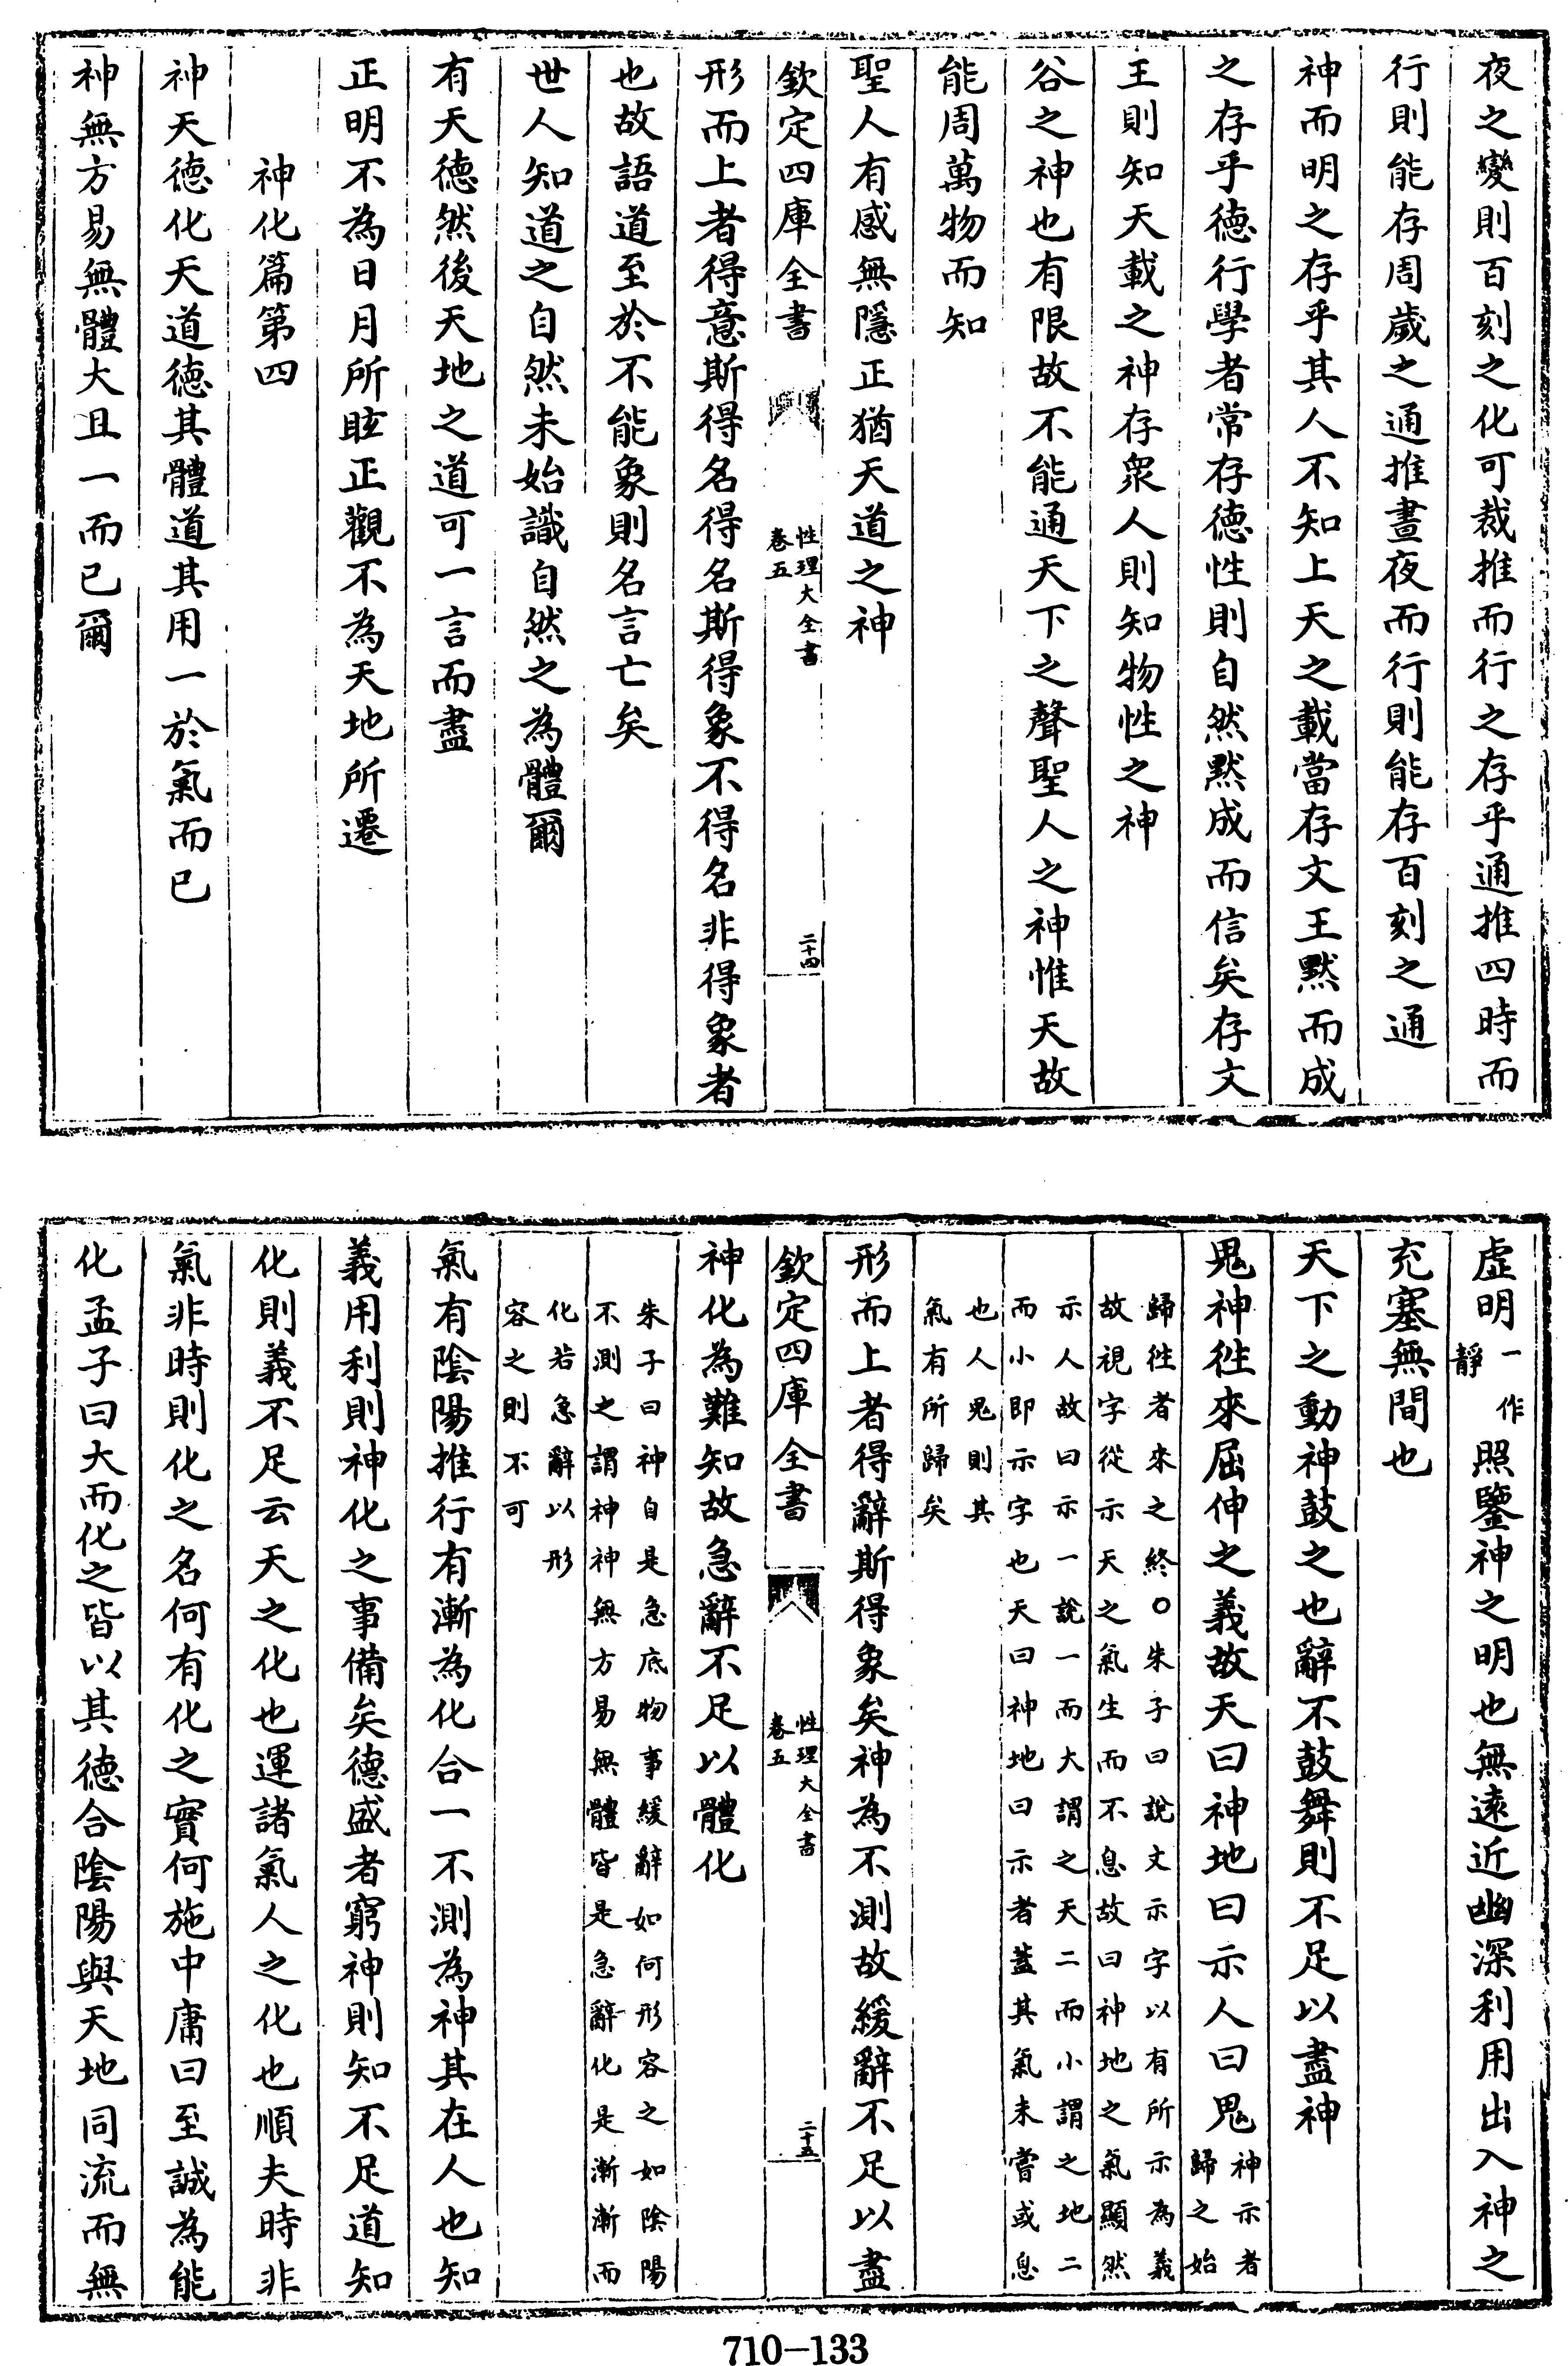 夜之變則百刻之化可裁推而行之存乎通推四時而
行則能存周歲之通推晝夜而行則能存百刻之通
神而明之存乎其人不知上天之載當存文王默而成
之存乎德行學者常存德性則自然默成而信矣存文
王則知天載之神存衆人則知物性之神
谷之神也有限故不能通天下之聲聖人之神惟天故
能周萬物而知
聖人有感無隱正猶天道之神
欽定四庫全書
性理大全書
卷五
二十四
形而上者得意斯得名得名斯得象不得名非得象者
也故語道至於不能象則名言亡矣
世人知道之自然未始識自然之為體爾
有天德然後天地之道可一言而盡
正明不為日月所眩正觀不為天地所遷
神化篇第四
神天德化天道德其體道其用一於氣而已
神無方易無體大且一而已爾
虛明一作靜照鑒神之明也無遠近幽深利用出入神之
充塞無間也
天下之動神鼓之也辭不鼓舞則不足以盡神
鬼神徃來屈伸之義故天曰神地曰示人曰鬼神示者歸之始
歸徃者來之終○朱子曰說文示字以有所示為義
故視字從示天之氣生而不息故曰神地之氣顯然
示人故曰示一說一而大謂之天二而小謂之地二
而小即示字也天曰神地曰示者葢其氣未嘗或息
也人鬼則其
氣有所歸矣
形而上者得辭斯得象矣神為不測故緩辭不足以盡
欽定四庫全書
性理大全書
卷五
二十五
神化為難知故急辭不足以體化
朱子曰神自是急底物事緩辭如何形容之如陰陽
不測之謂神神無方易無體皆是急辭化是漸漸而
化若急辭以形
容之則不可
氣有陰陽推行有漸為化合一不測為神其在人也知
義用利則神化之事備矣德盛者窮神則知不足道知
化則義不足云天之化也運諸氣人之化也順夫時非
氣非時則化之名何有化之實何施中庸曰至誠為能
化孟子曰大而化之皆以其德合陰陽與天地同流而無
710-133